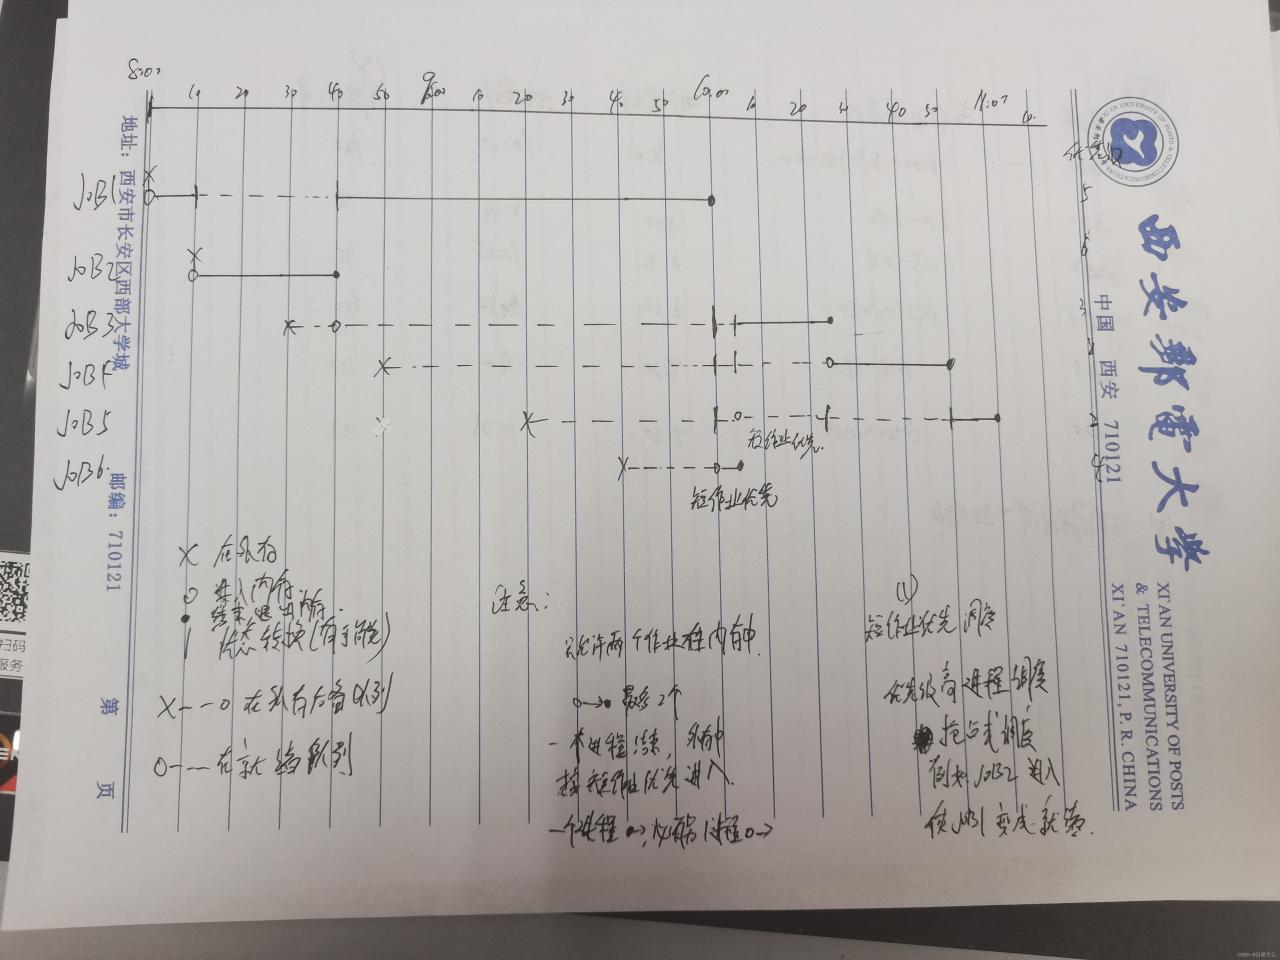 8:00 10 20 30 40 50 9:00 10 20 30 40 50 10:00 10 20 40 50 11:00
优先级
JOB1 5
JOB2 6
JOB3 3
JOB5 2
JOB6 4
短作业优先.
短作业优先
X 在外存
进入内存
结束退出内存.
状态转换(有可能)
X--o 在外存后备队列
o---在就绪队列
注意:
只允许两个作业在内存中.
最多2个
一个进程结束, 外存中
按短作业优先进入.
(1)
短作业优先 调度
优先级高进程调度
抢占式调度
例如JOB2进入
使JOB1变成就绪.
地址：西安市长安区西部大学城
邮编：710121
第 页
中国 西安 710121
西安邮电大学
XI'AN UNIVERSITY OF POSTS
& TELECOMMUNICATIONS
XI'AN 710121, P. R. CHINA
扫码
服务